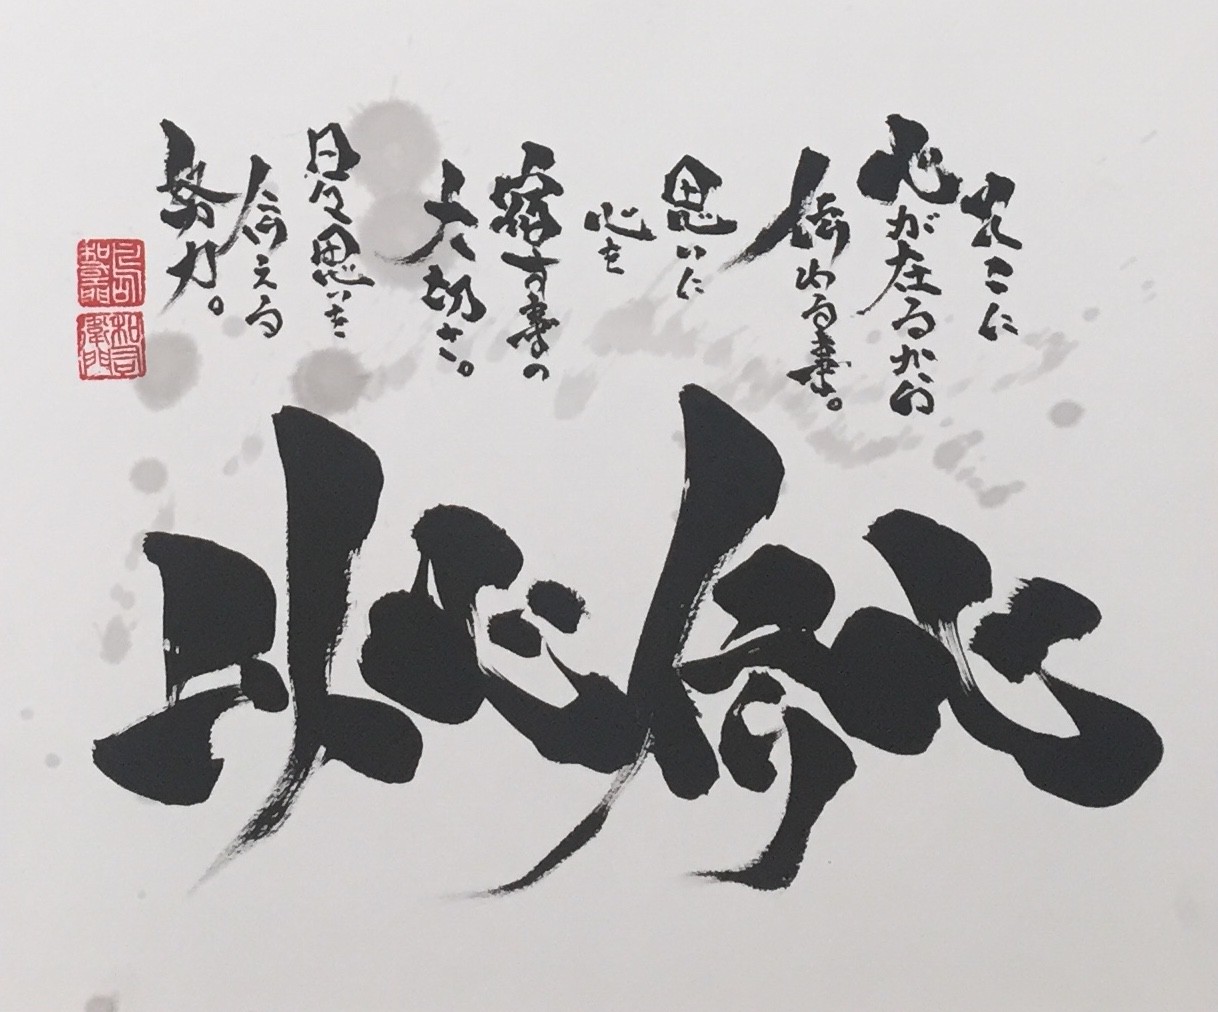 そこに
心が在るから
伝わる事。
思いに
心を
宿す事の
大切さ。
日々思いを
伝える
努力。
以心伝心